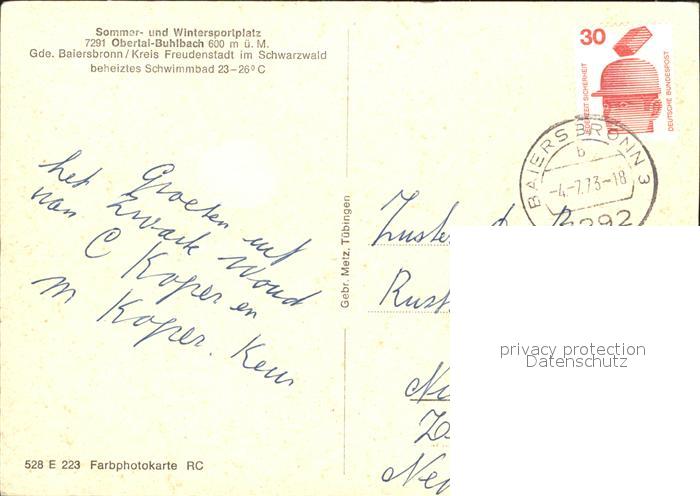 Sommer- und Wintersportplatz
7291 Obertal-Buhlbach 600 m ü. M.
Gde. Baiersbronn/Kreis Freudenstadt im Schwarzwald
beheiztes Schwimmbad 23–26° C
30
JEDERZEIT SICHERHEIT
DEUTSCHE BUNDESPOST
BAIERSBRONN 3
b
-4.-7.73-18
7292
Groeten uit
het Zwarte Woud
van
C Koper en
M Koper. Keur
Gebr. Metz, Tübingen
Zuster
Rust
privacy protection
Datenschutz
528 E 223 Farbphotokarte RC